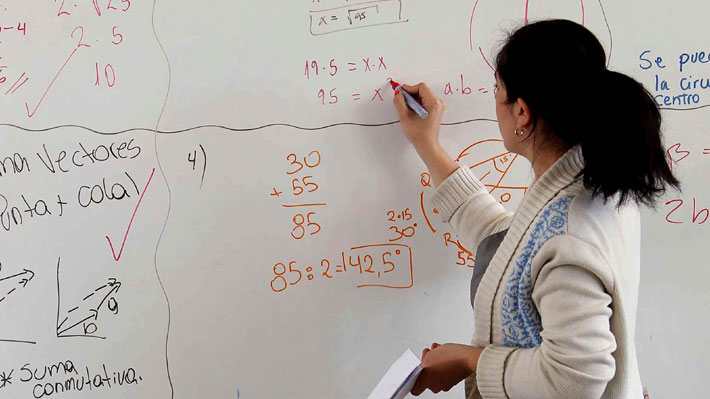 2·5
10
x = √95
19·5 = x·x
95 = x²
a·b =
Se pue
la circu
centro
Vectores
Punta + cola
4)
30
+ 55
85
2·15
30°
85:2=42,5°
Q
O
R
55
2b
a
b
* Suma
conmutativa.